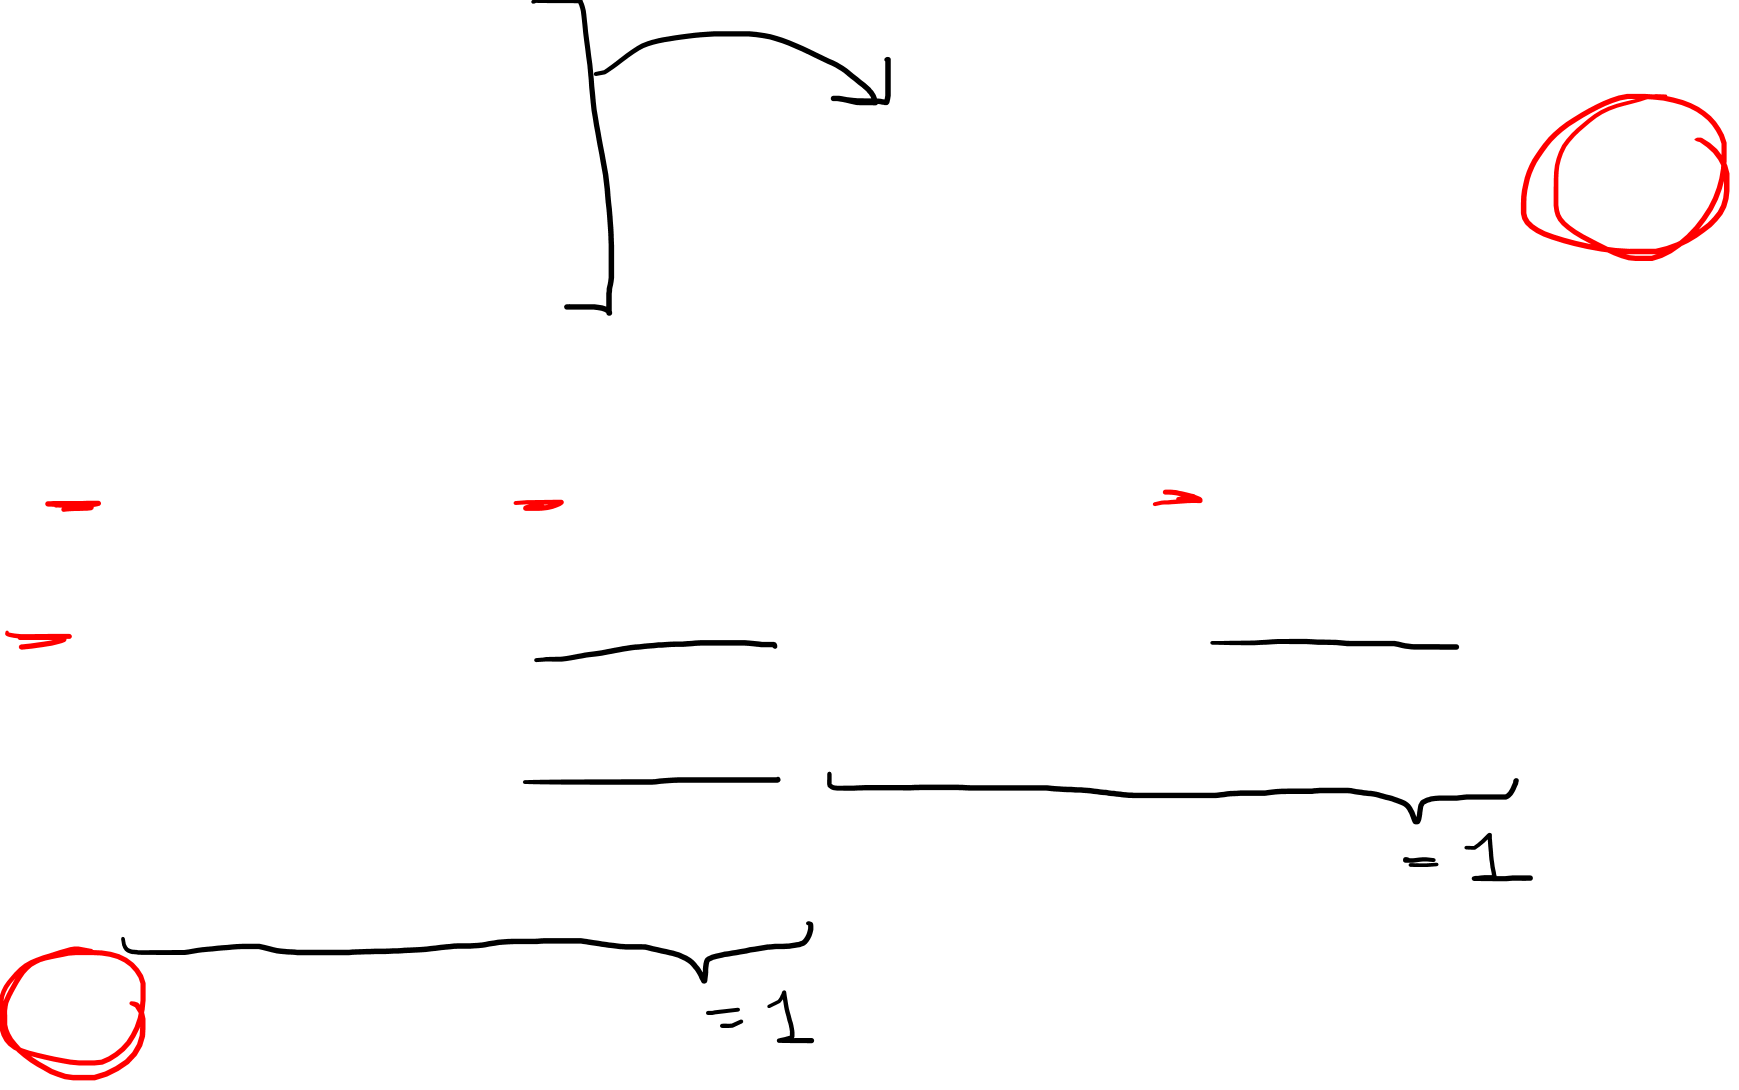 = 1
= 1